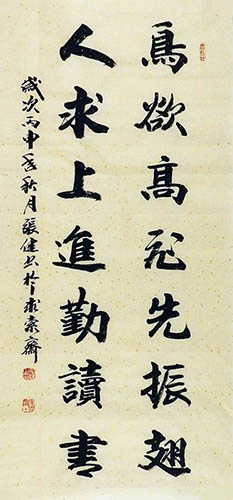 鳥欲高飛先振翅
人求上進勤讀書
歲次丙申年秋月張健書於求索齋